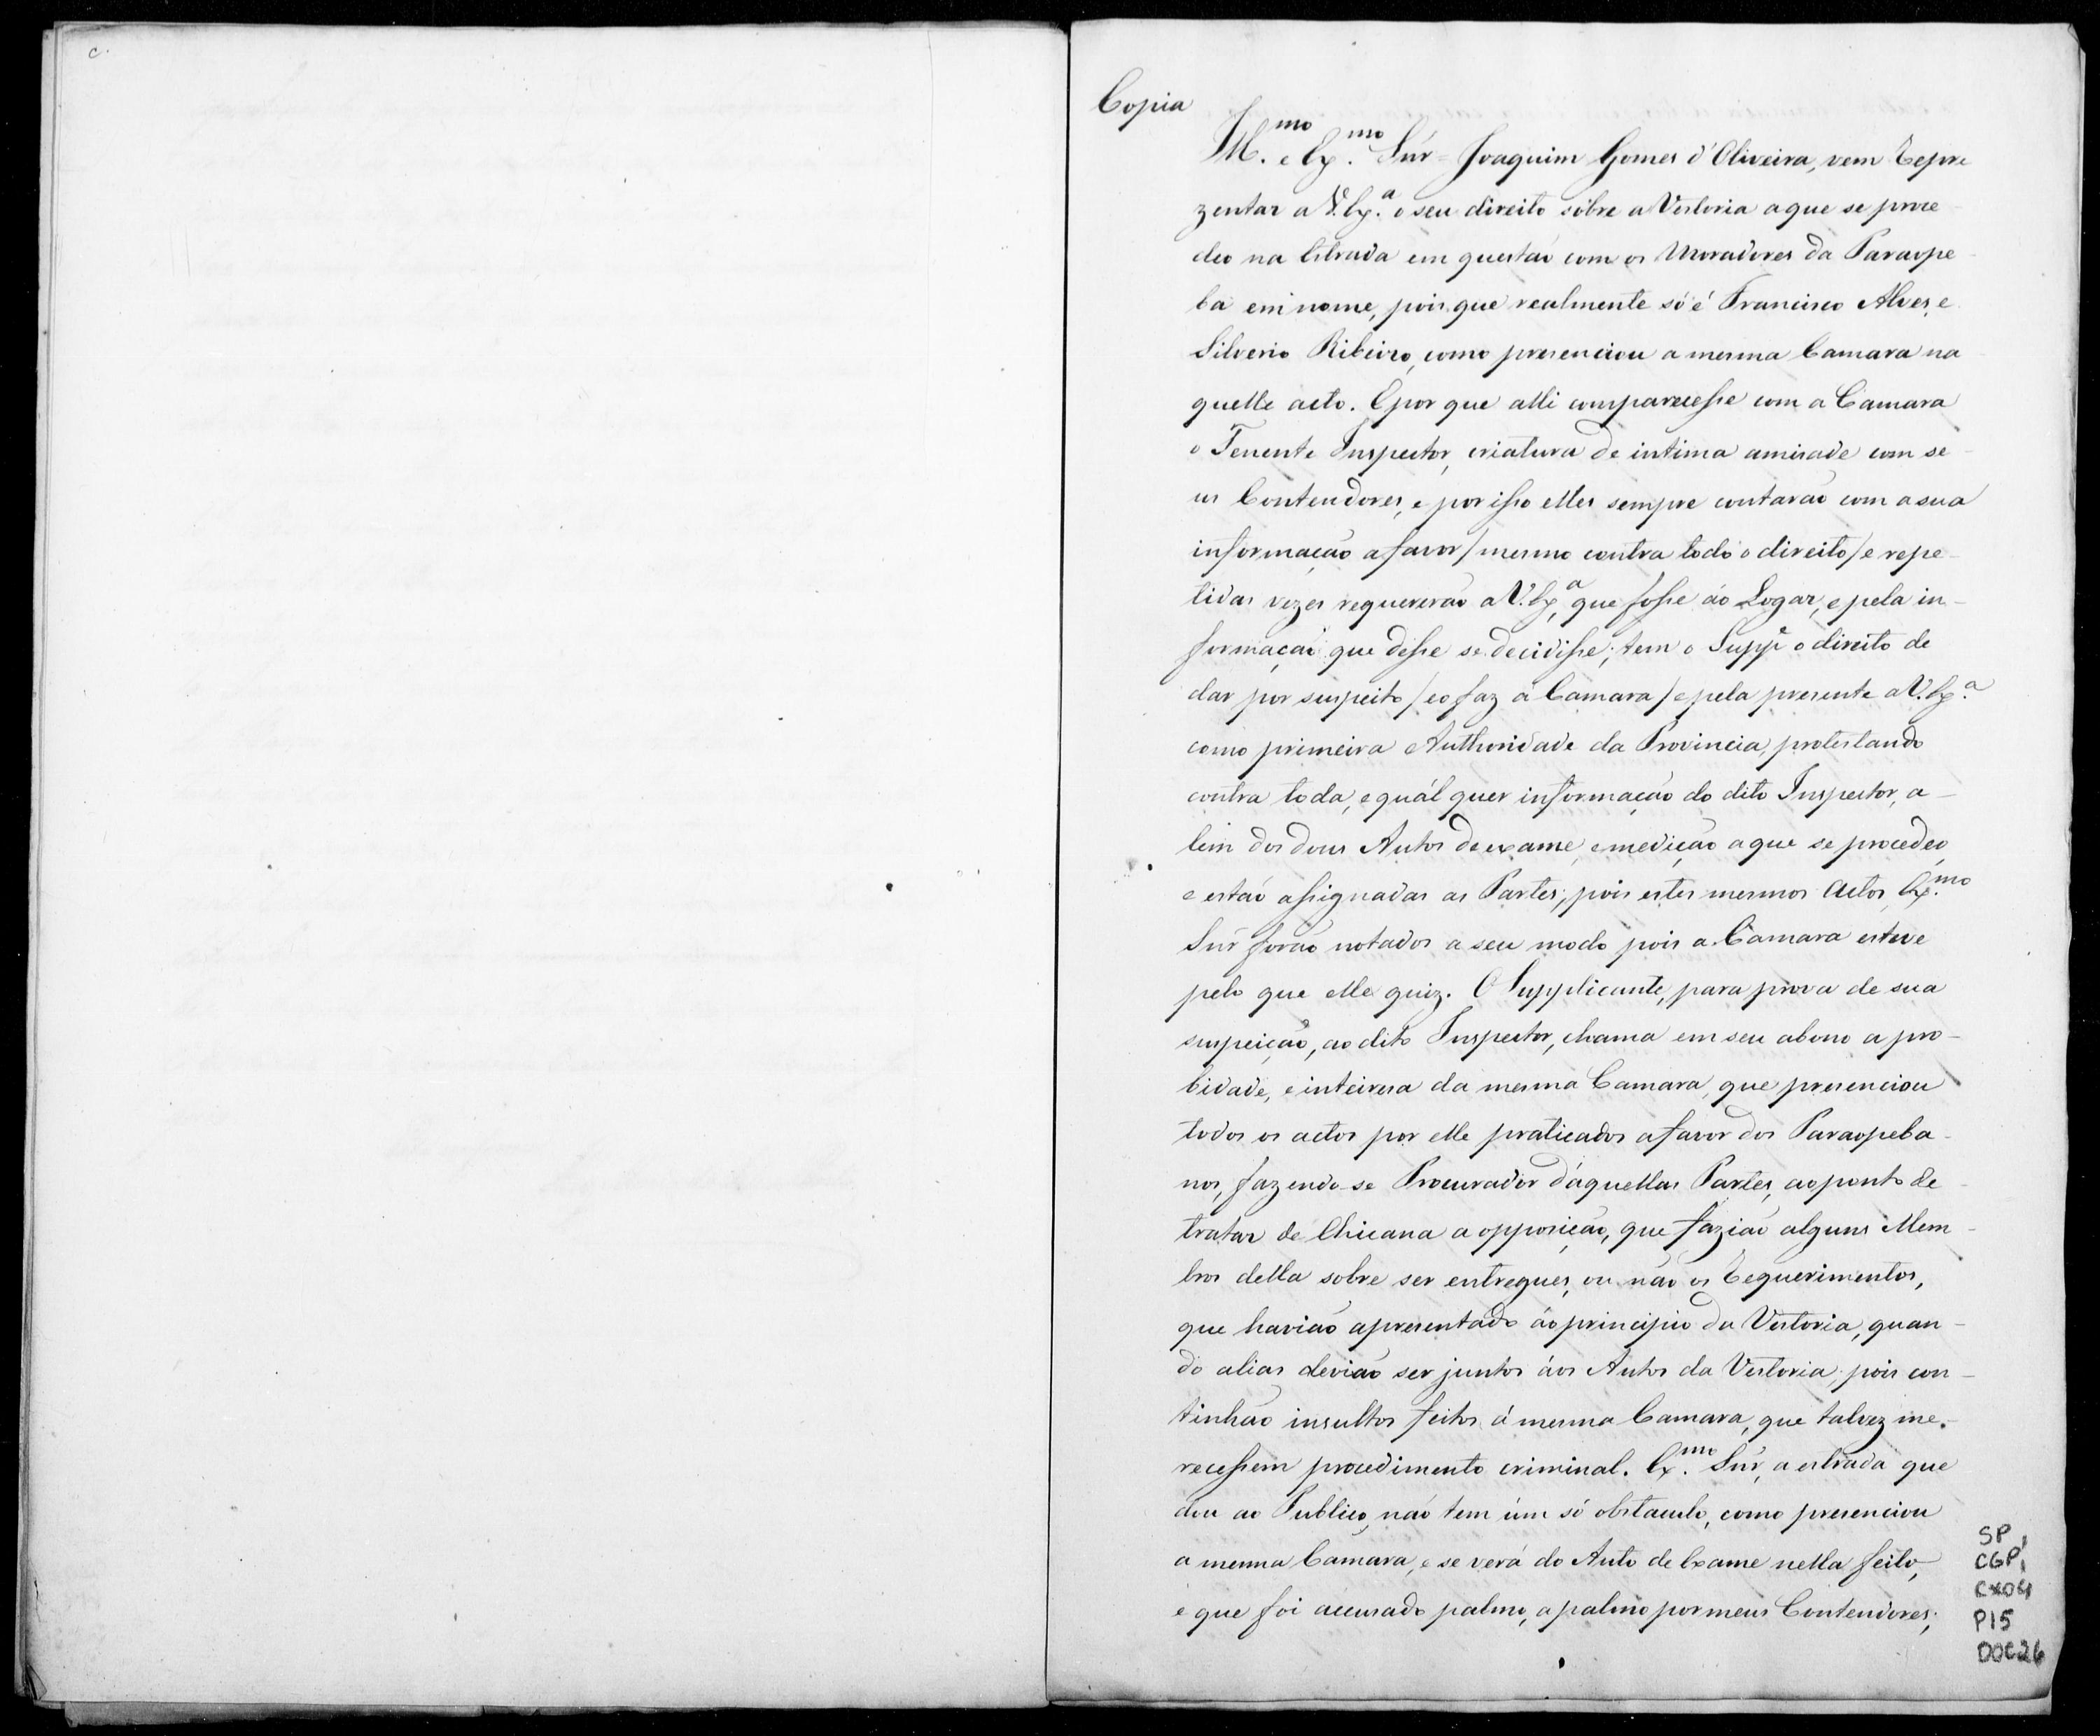 c.
Copia
Ill.mo e Ex.mo Snr = Joaquim Gomes d'Oliveira, vem Repre
zentar a V. Ex.a o seu direito sobre a Vestoria a que se proce-
deo na Estrada em questaõ com os Moradores da Paraope-
ba em nome, pois que realmente só é Francisco Alves, e
Silverio Ribeiro, como presenciou a mesma Camara na
quelle acto. E por que alli comparecesse com a Camara
o Tenente Inspector, criatura de intima amisade com se-
us Contendores, e por isso elles sempre contaraõ com a sua
informaçaõ a favor / mesmo contra todo o direito / e repe-
tidas vezes requereraõ a V. Ex.a, que fosse áo Logar, e pela in-
formaçaõ que desse se decidisse; tem o Supp.e o direito de
dar por suspeito / e o faz á Camara / e pela presente a V. Ex.a
como primeira Authoridade da Provincia, protestando
contra toda, e quál quer informaçaõ do dito Inspector, a-
lem dos dous Autos de exame, e mediçaõ a que se procedeo,
e estaõ assignadas as Partes; pois estes mesmos Actos, Ex.mo
Snr foraõ notados a seu modo pois a Camara esteve
pelo que elle quiz. O Supplicante, para prova de sua
suspeiçaõ, ao dito Inspector, chama em seu abono a pro-
bidade, e inteiresa da mesma Camara, que presenciou
todos os actos por elle praticados a favor dos Paraopeba-
nos, fazendo-se Procurador d'aquellas Partes, ao ponto de
tratar de Chicana a opposiçaõ, que faziaõ alguns Mem-
bros della sobre ser entregues, ou naõ os Requerimentos,
que haviaõ apresentado áo principio da Vestoria, quan-
do alias deviaõ ser juntos áos Autos da Vestoria; pois con-
tinhaõ insultos feitos á mesma Camara, que talvez me-
recessem procedimento criminal. Ex.mo Snr, a estrada que
dou ao Publico, naõ tem úm só obstaculo, como presenciou
a mesma Camara, e se verá do Auto de Exame nella feito,
e que foi accusado palmo, a palmo por meus Contendores;
SP,
CGP,
CX04
P15
DOC26